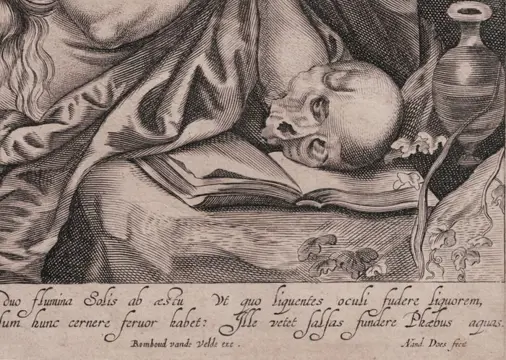 duo flumina Solis ab æstu Vt quo liquentes oculi fudere liquorem,
lum hunc cernere feruor habet: Ille vetet salsas fundere Phæbus aquas.
Romboud vande Velde exc. Nånd. Does fecit